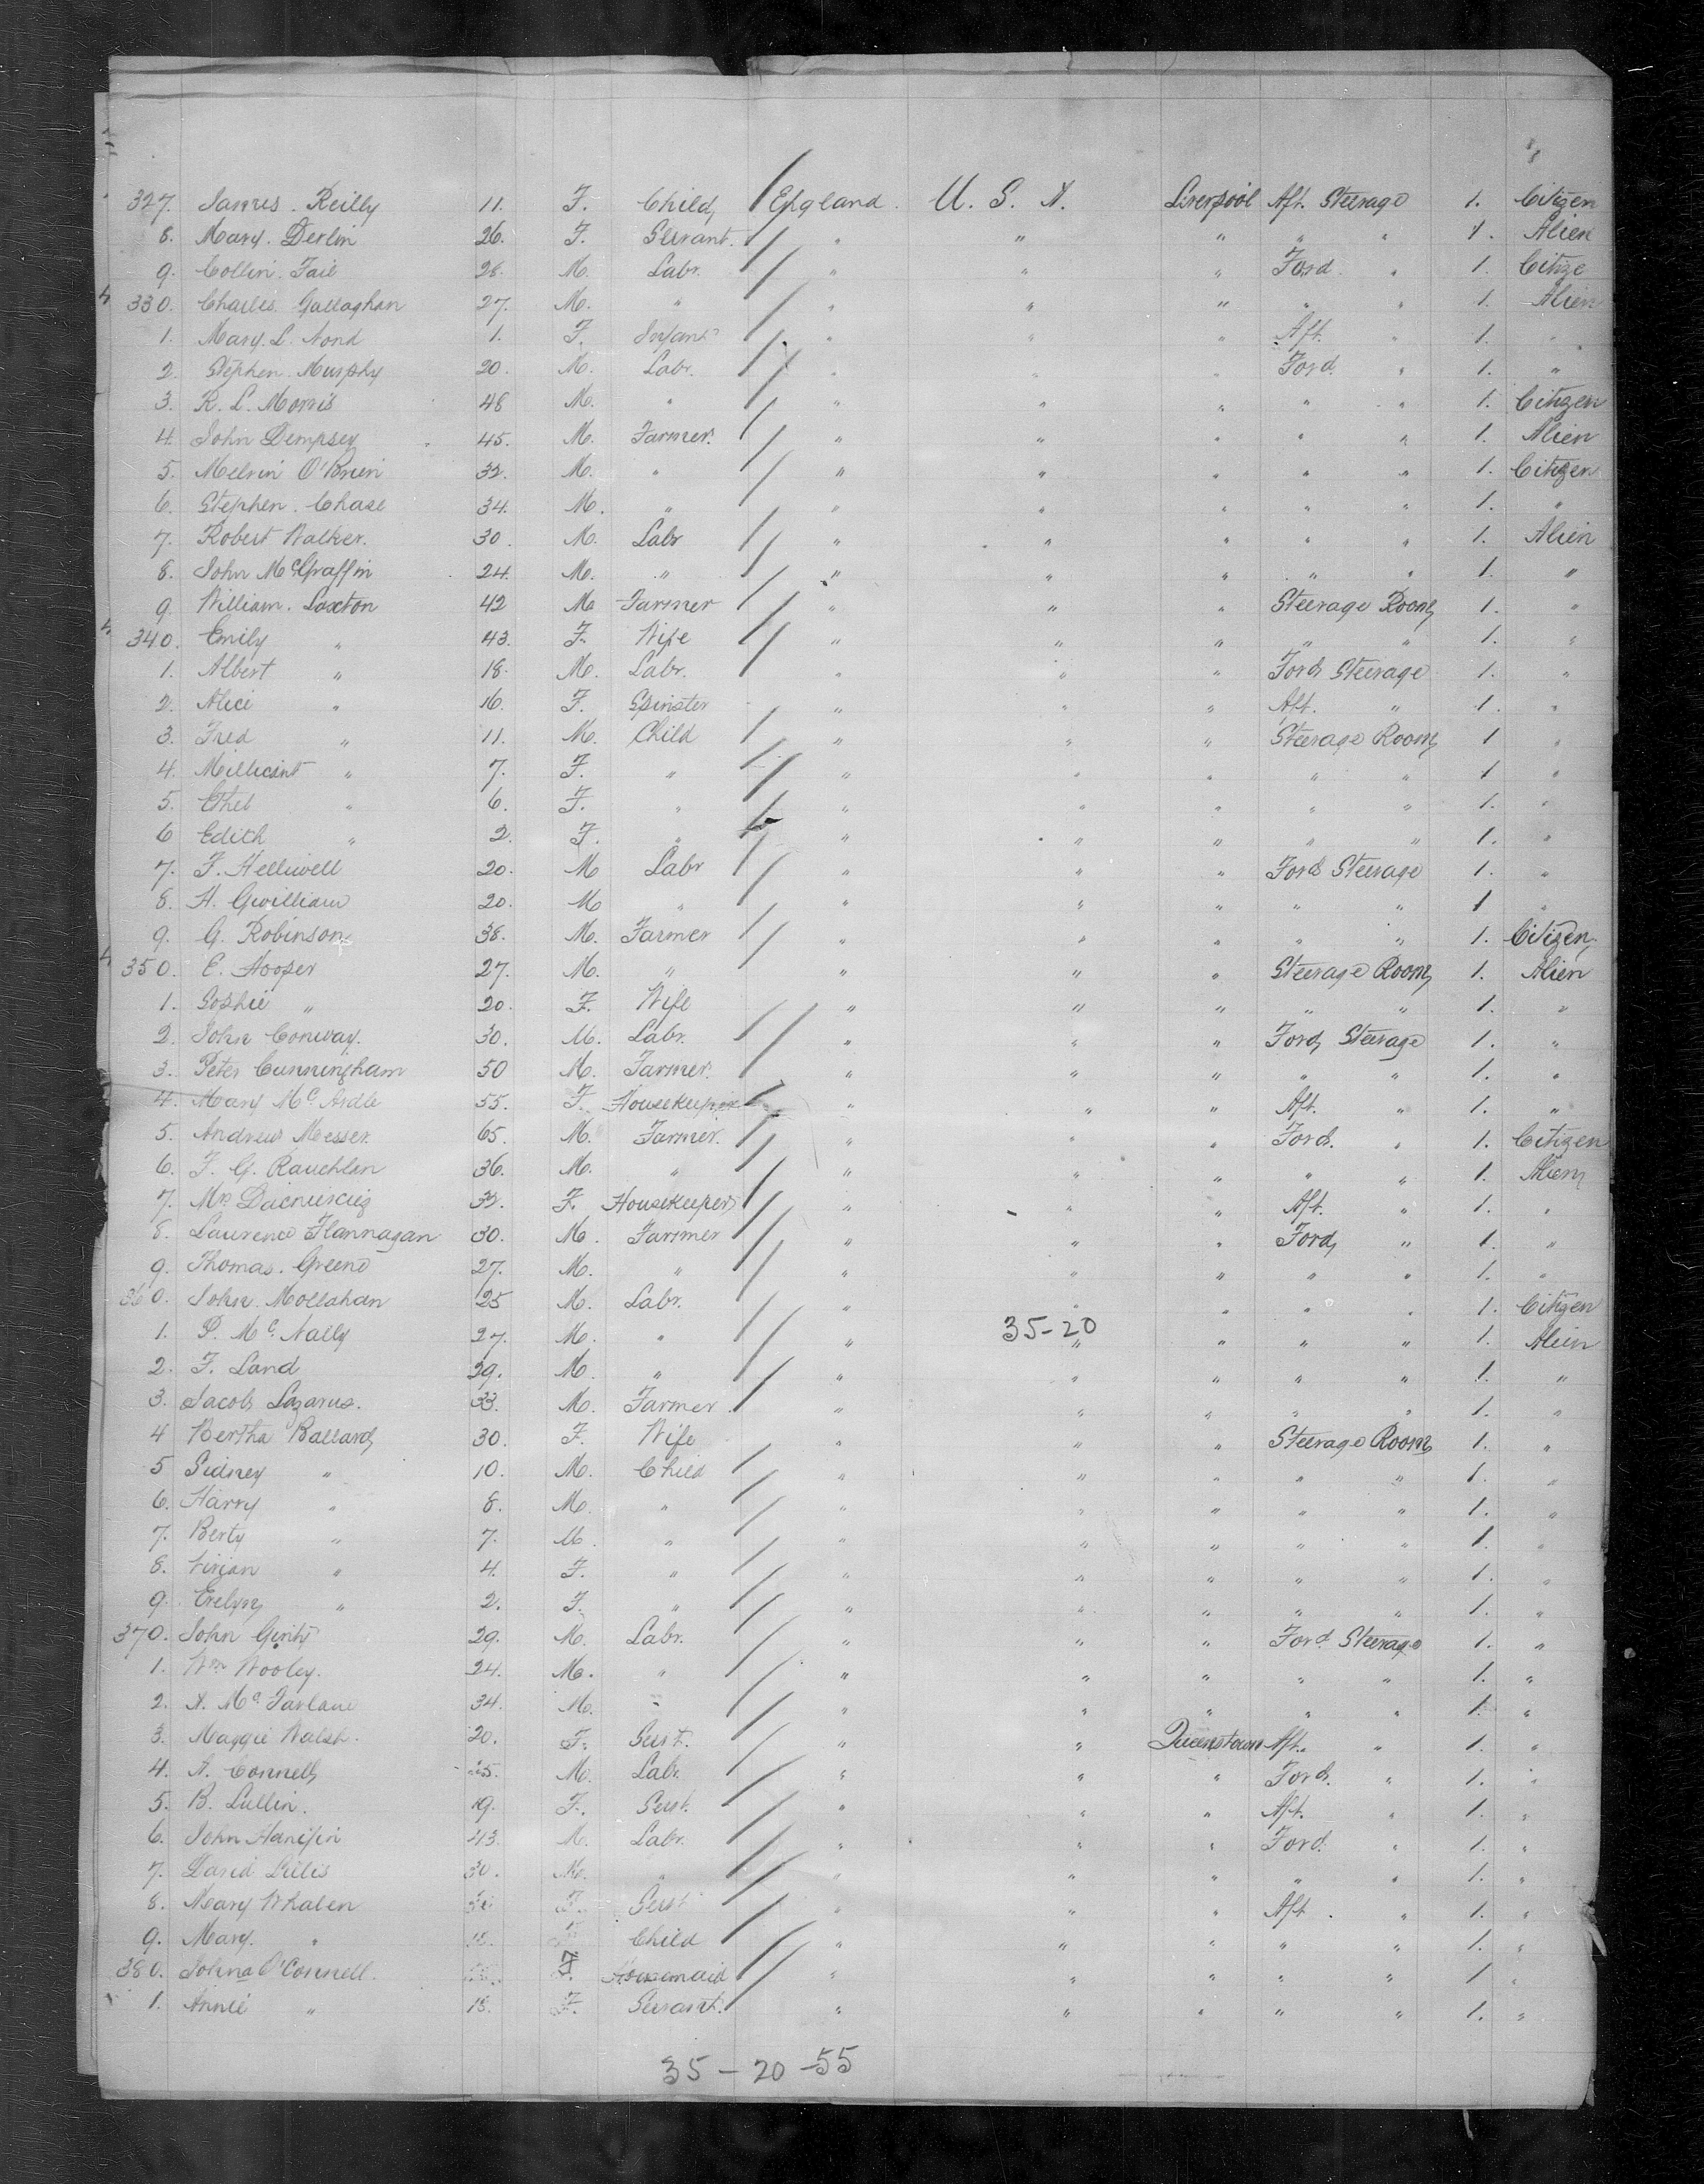 327. James. Reilly 11. F. Child England. U. S. A. Liverpool Aft. Steerage 1. Citizen
8. Mary. Derlin 26. F. Servant. " " " " " 1. Alien
9. Collin. Fair 28. M. Labr. " " " Ford. " 1. Citize
330. Charles. Gallaghan 27. M. " " " " " " 1. Alien
1. Mary. L. Nond 1. F. Infant " " " Aft. " 1. "
2. Stephen. Murphy 20. M. Labr. " " " Ford. " 1. "
3. R. L. Morris 48 M. " " " " " " 1. Citizen
4. John Dempsey 45. M. Farmer. " " " " " 1. Alien
5. Melvin O'Brien 32. M. " " " " " " 1. Citizen
6. Stephen. Chase 34. M. " " " " " " 1. "
7. Robert Walker. 30. M. Labr " " " " " 1. Alien
8. John McGraffin 24. M. " " " " " " 1. "
9. William. Saxton 42 M Farmer " " " Steerage Room 1. "
340. Emily " 43. F. Wife " " " " " 1. "
1. Albert " 18. M. Labr. " " " Ford Steerage 1. "
2. Alice " 16. F. Spinster " " " Aft. " 1. "
3. Fred " 11. M. Child " " " Steerage Room 1 "
4. Millicint " 7. F. " " " " " " 1 "
5. Ethel " 6. F. " " " " " " 1. "
6 Edith " 2. F. " " " " " " 1. "
7. F. Helliwell 20. M Labr " " " Ford Steerage 1. "
8. H. Gwilliam 20. M " " " " " " 1 "
9. G. Robinson 38. M. Farmer " " " " " 1. Citizen
350. E. Hooper 27. M. " " " " Steerage Room 1. Alien
1. Sophie " 20. F. Wife " " " " " 1. "
2. John Conway. 30. M. Labr. " " " Ford Steerage 1. "
3. Peter Cunningham 50 M. Farmer. " " " " " 1. "
4. Mary Mc Ardle 55. F. Housekeeper " " " Aft. " 1. "
5. Andrew Messer. 65. M. Farmer. " " " Ford. " 1. Citizen
6. F. G. Rauchlin 36. M. " " " " " " 1. Alien
7. Mrs F. Housekeeper " " " Aft. " 1. "
8. Laurence Flannagan 30. M. Farmer " " " Ford " 1. "
9. Thomas. Greene 27. M. " " " " " " 1. "
360. John. Mollahan 25 M. Labr. " " " " " 1. Citizen
1. P. Mc. Nally 27. M. " " 35-20 " " " " 1. Alien
2. F. Land 29. M. " " " " " " 1. "
3. Jacob Lazarus. 33. M. Farmer. " " " " " 1. "
4 Bertha Ballard 30. F. Wife " " " Steerage Room 1. "
5 Sidney " 10. M. Child " " " " " 1. "
6. Harry " 8. M. " " " " " " 1. "
7. Berty " 7. M. " " " " " " 1. "
8. Vivian " 4. F. " " " " " " 1. "
9. Evelyn " 2. F. " " " " " " 1. "
370. John Gerity 29. M. Labr. " " " Ford Steerage 1. "
1. Wm Wooley. 24. M. " " " " " " 1. "
2. A. Mc. Farlane 34. M. " " " " " " 1. "
3. Maggie Walsh. 20. F. Servt. " " Queenstown Aft. " 1. "
4. A. Connell 25. M. Labr. " " " Ford. " 1. "
5. B. Lullin. 19. F. Servt. " " " Aft. " 1. "
6. John Hanifin M. Labr. " " " Ford. " 1. "
7. David Lillis 30. M. " " " " " " 1. "
8. Mary Whalen F. Servt " " " Aft. " 1. "
9. Mary. " Child " " " " " 1. "
380. Johna O'Connell. F. Housemaid " " " " " 1 "
1. Annie " 18. F. Servant. " " " " " 1. "
35-20-55